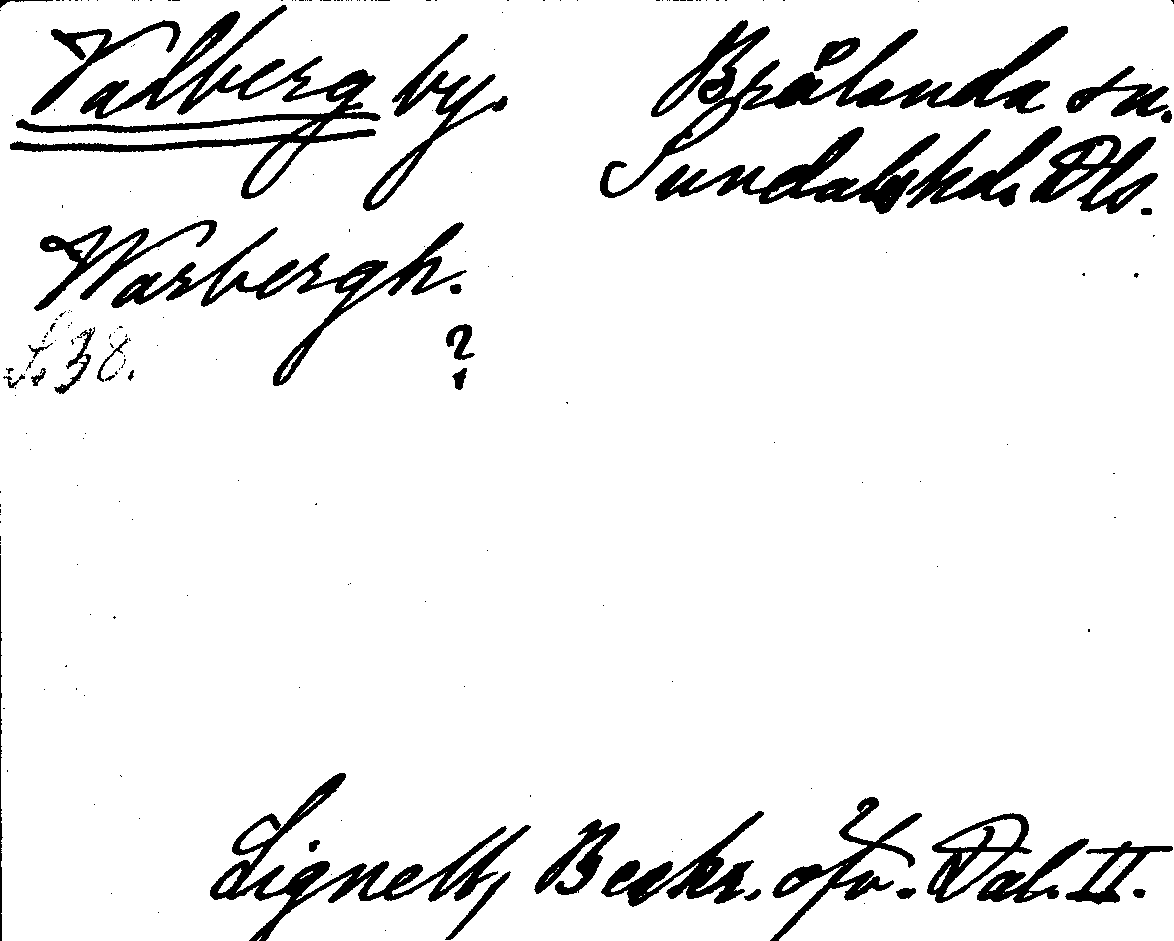 Valberg by.
Brålanda sn.
Sundals hd. Dls.
Warbergh.
S. 38.
?
Lignell, Beskr. öfv. Dal. II.